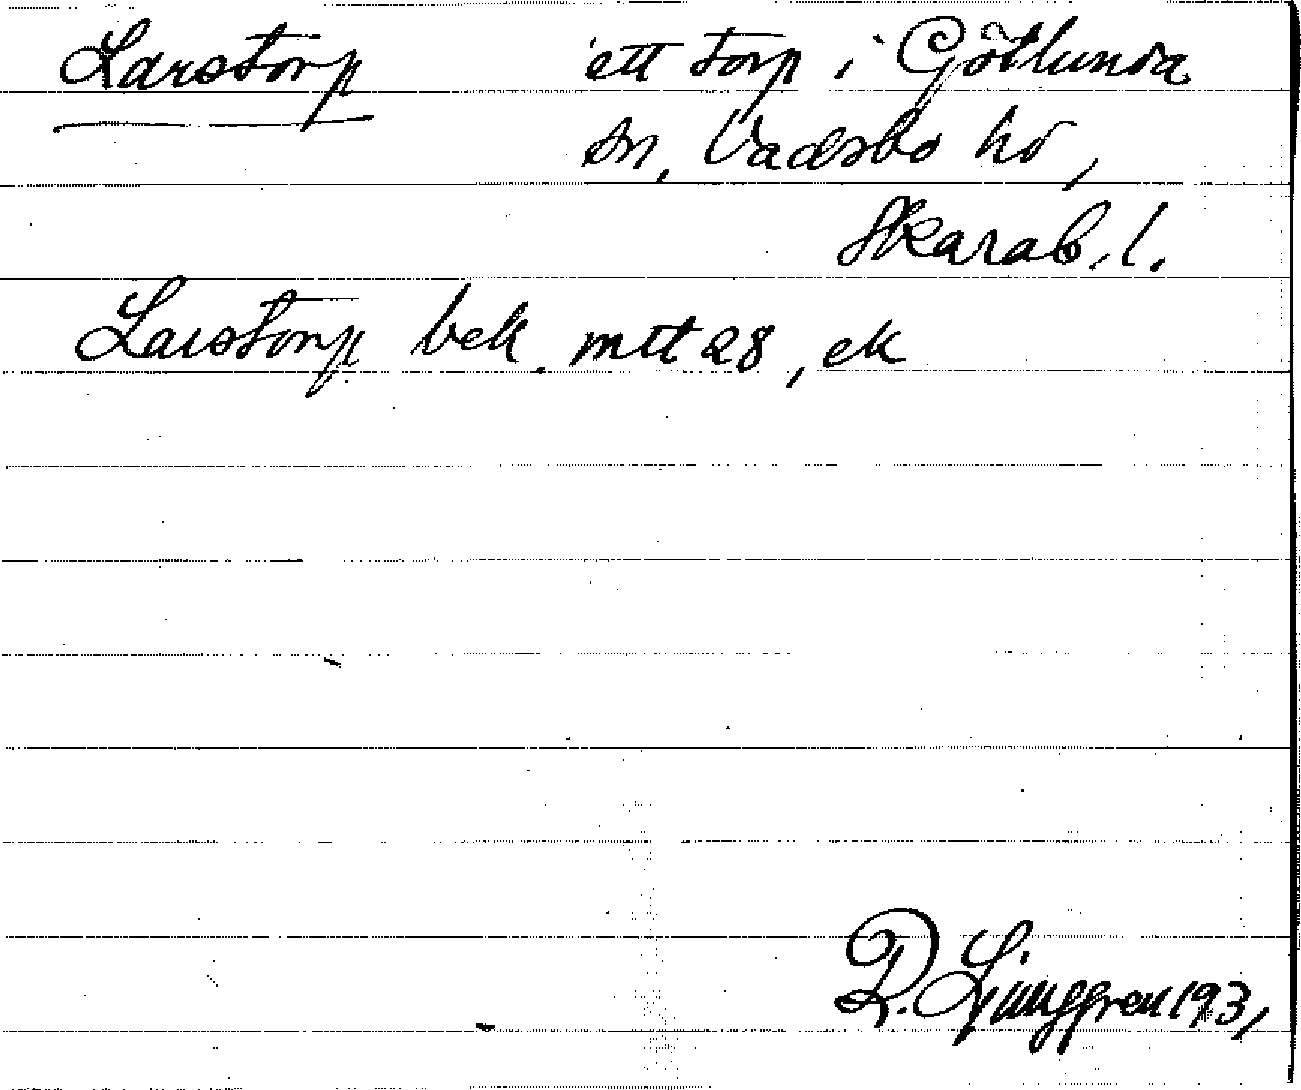 Larstorp ett torp i Götlunda
sn, Vadsbo hd,
Skarab. l.
Larstorp bek. mtt 28, ek
R. Ljunggren 193,